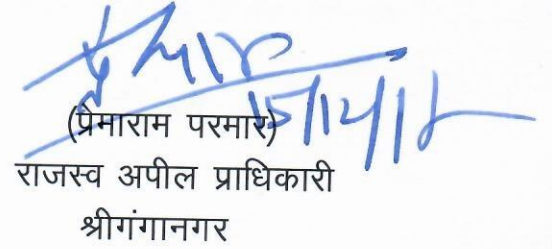 15/12/1
(प्रेमाराम परमार)
राजस्व अपील प्राधिकारी
श्रीगंगानगर